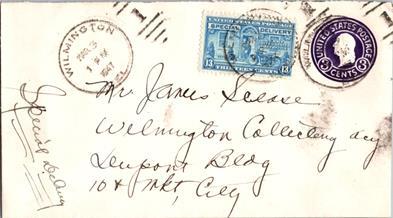 WILMINGTON
1947
DEL.
UNITED STATES POSTAGE
SPECIAL DELIVERY
13 THIRTEEN CENTS 13
UNITED STATES POSTAGE
3 CENTS 3
Mr James
Wilmington Collecting agcy
Dupont Bldg
10 & Mkt, City
Special Delivery